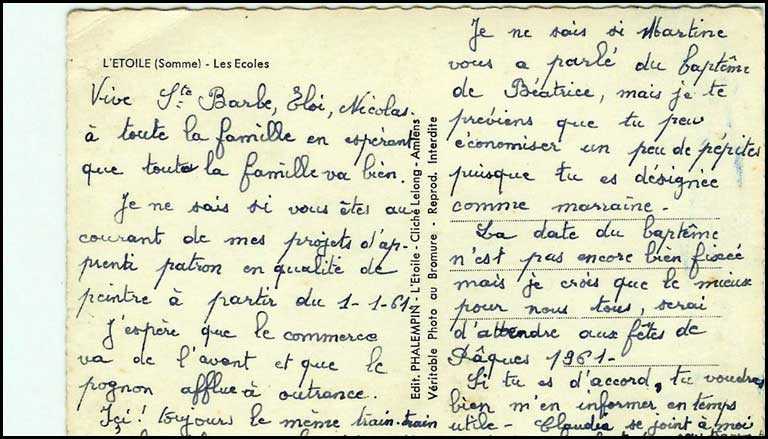 L'ETOILE (Somme) - Les Ecoles
Vive Ste Barbe, Eloi, Nicolas.
à toute la famille en espérant
que toute la famille va bien.
Je ne sais si vous êtes au
courant de mes projets d'ap-
prenti patron en qualité de
peintre à partir du 1-1-61-
J'espère que le commerce
va de l'avant et que le
pognon afflue à outrance.
Içi! toujours le même train-train
Edit. PHALEMPIN - L'Etoile - Cliché Lelong - Amiens
Véritable Photo au Bromure - Reprod. Interdite
Je ne sais si Martine
vous a parlé du baptême
de Béatrice, mais je te
préviens que tu peu
économiser un peu de pépites
puisque tu es désignée
comme marraine -
La date du baptême
n'est pas encore bien fixée
mais je crois que le mieux
pour nous tous, serai
d'attendre aux fêtes de
Pâques 1961-
Si tu es d'accord, tu voudras
bien m'en informer en temps
utile - Claudia se joint à moi